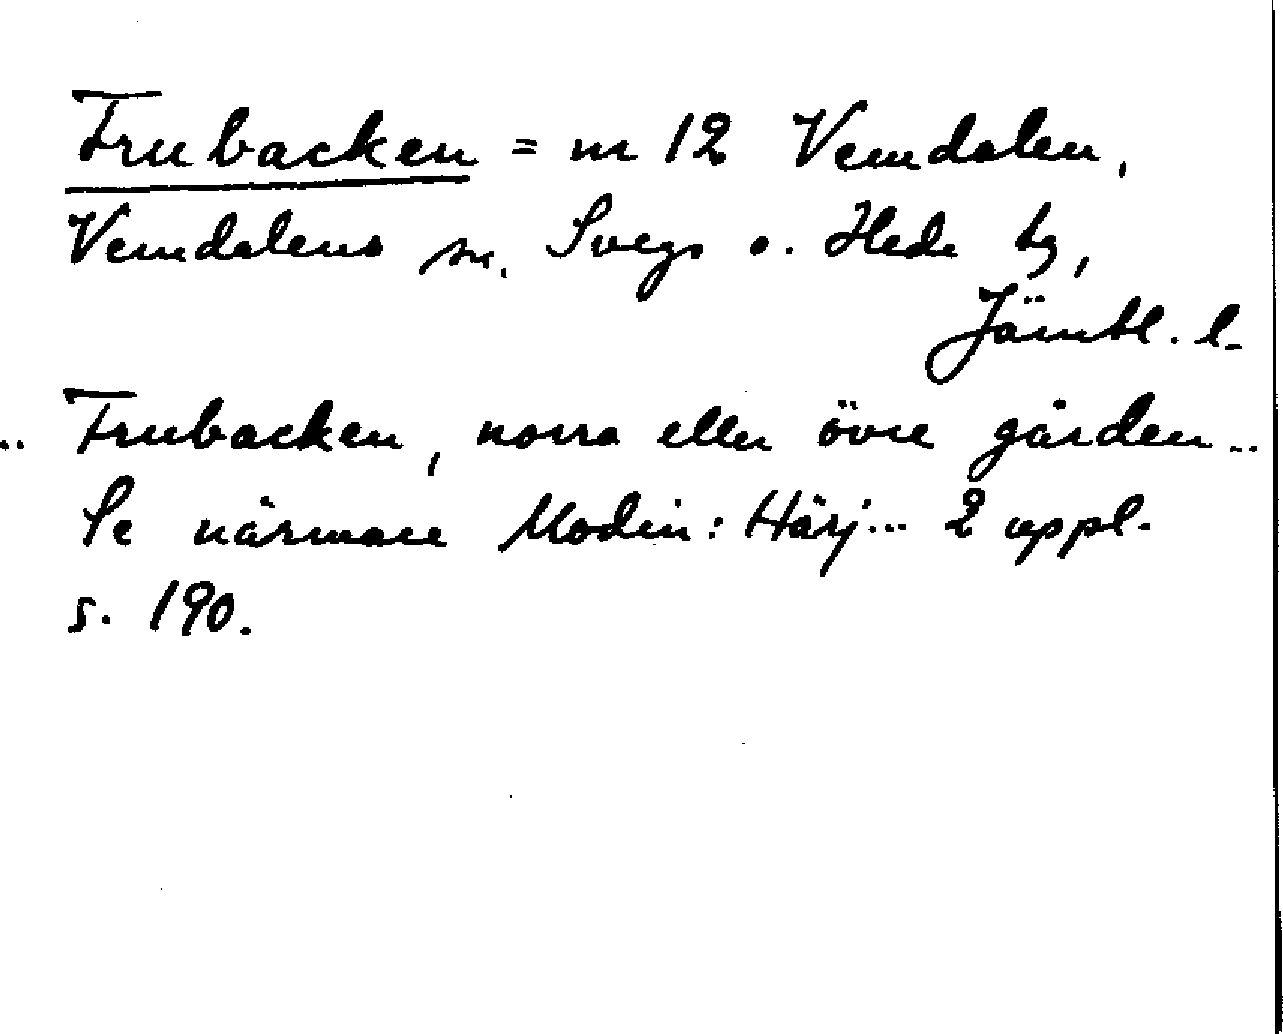 Frubacken = nr 12 Vemdalen,
Vemdalens sn. Svegs o. Hede tg,
Jämtl. l.
.. Frubacken, norra eller övre gården..
Se närmare Modin: Härj... 2 uppl.
s. 190.